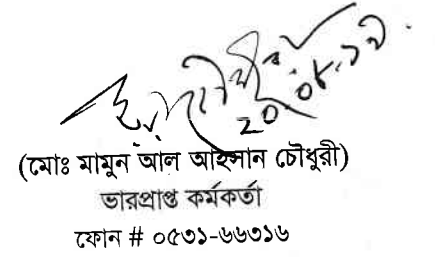 ২০.০৮.১৯.
(মোঃ মামুন আল আহসান চৌধুরী)
ভারপ্রাপ্ত কর্মকর্তা
ফোন # ০৫৩১-৬৬৩১৬